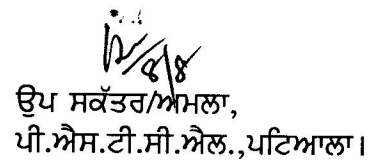 ਉਪ ਸਕੱਤਰ/ਅਮਲਾ,
ਪੀ.ਐਸ.ਟੀ.ਸੀ.ਐਲ.,ਪਟਿਆਲਾ।